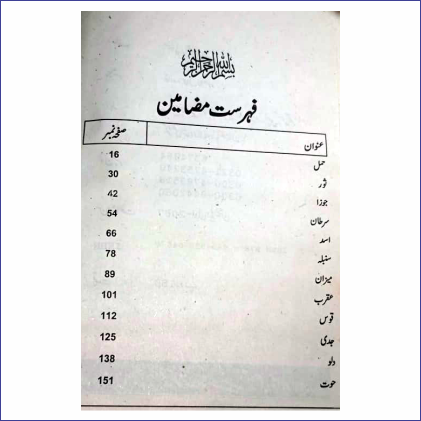 بسم اللہ الرحمن الرحیم
فہرست مضامین
عنوان صفحہ نمبر
حمل 16
ثور 30
جوزا 42
سرطان 54
اسد 66
سنبلہ 78
میزان 89
عقرب 101
قوس 112
جدی 125
دلو 138
حوت 151